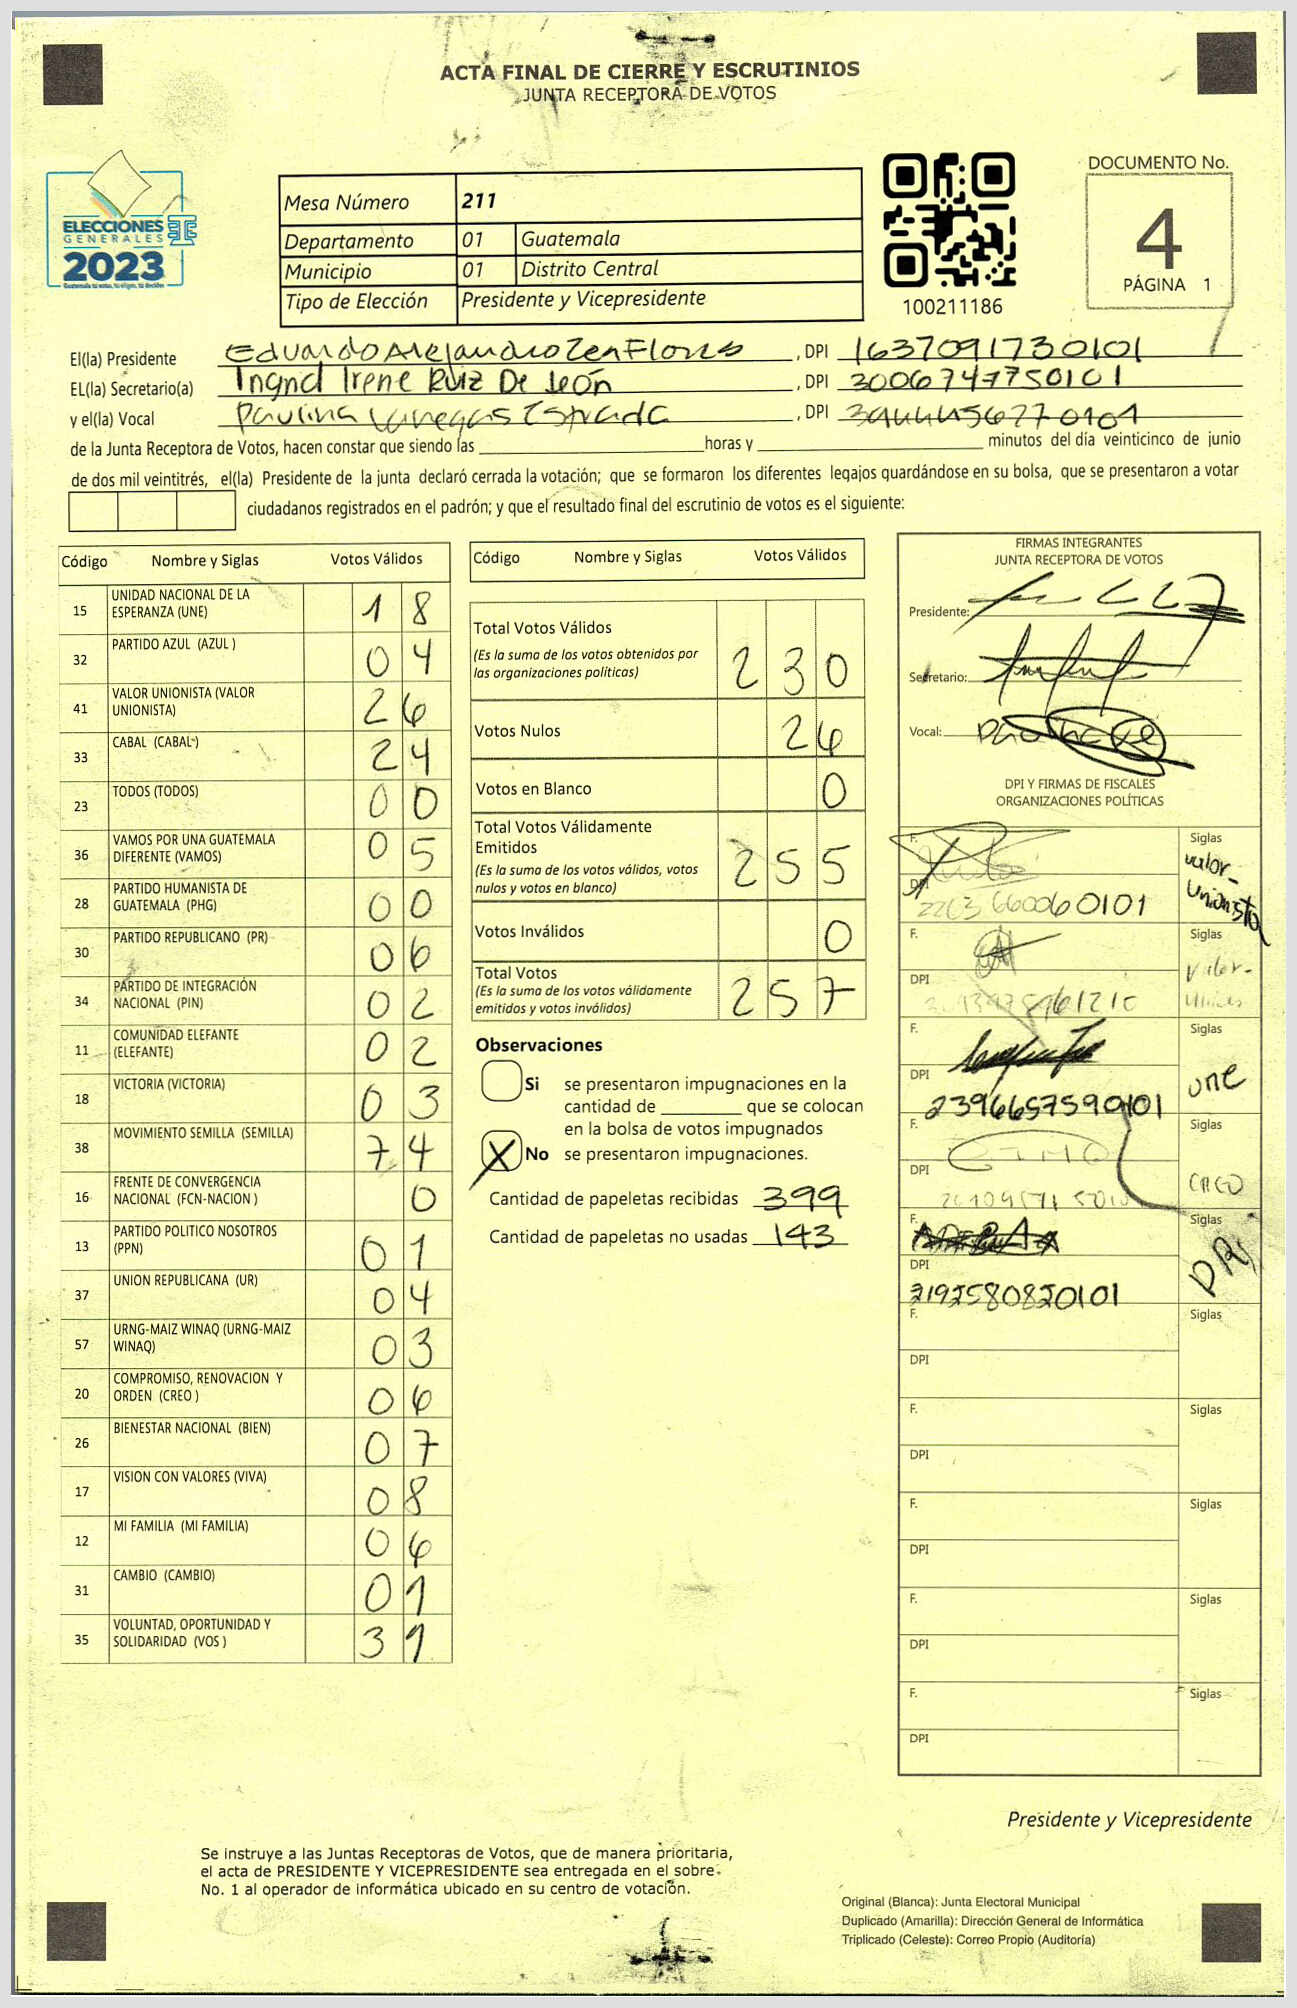 ACTA FINAL DE CIERRE Y ESCRUTINIOS
JUNTA RECEPTORA DE VOTOS
ELECCIONES
GENERALES
2023
Mesa Número 211
Departamento 01 Guatemala
Municipio 01 Distrito Central
Tipo de Elección Presidente y Vicepresidente
100211186
DOCUMENTO No.
4
PÁGINA 1
El(la) Presidente Eduardo Alejandro Zea Flores, DPI 1637091730101
EL(la) Secretario(a) Ingrid Irene Ruiz De León, DPI 3006747750101
y el(la) Vocal Paulina Vanegas Estrada, DPI
de la Junta Receptora de Votos, hacen constar que siendo las horas y minutos del día veinticinco de junio
de dos mil veintitrés, el(la) Presidente de la junta declaró cerrada la votación; que se formaron los diferentes legajos guardándose en su bolsa, que se presentaron a votar
ciudadanos registrados en el padrón; y que el resultado final del escrutinio de votos es el siguiente:
Código Nombre y Siglas Votos Válidos
15 UNIDAD NACIONAL DE LA ESPERANZA (UNE) 18
32 PARTIDO AZUL (AZUL ) 04
41 VALOR UNIONISTA (VALOR UNIONISTA) 26
33 CABAL (CABAL) 24
23 TODOS (TODOS) 00
36 VAMOS POR UNA GUATEMALA DIFERENTE (VAMOS) 05
28 PARTIDO HUMANISTA DE GUATEMALA (PHG) 00
30 PARTIDO REPUBLICANO (PR) 06
34 PARTIDO DE INTEGRACIÓN NACIONAL (PIN) 02
11 COMUNIDAD ELEFANTE (ELEFANTE) 02
18 VICTORIA (VICTORIA) 03
38 MOVIMIENTO SEMILLA (SEMILLA) 74
16 FRENTE DE CONVERGENCIA NACIONAL (FCN-NACION ) 0
13 PARTIDO POLITICO NOSOTROS (PPN) 01
37 UNION REPUBLICANA (UR) 04
57 URNG-MAIZ WINAQ (URNG-MAIZ WINAQ) 03
20 COMPROMISO, RENOVACION Y ORDEN (CREO ) 06
26 BIENESTAR NACIONAL (BIEN) 07
17 VISION CON VALORES (VIVA) 08
12 MI FAMILIA (MI FAMILIA) 06
31 CAMBIO (CAMBIO) 01
35 VOLUNTAD, OPORTUNIDAD Y SOLIDARIDAD (VOS ) 31
Código Nombre y Siglas Votos Válidos
Total Votos Válidos 230
(Es la suma de los votos obtenidos por
las organizaciones políticas)
Votos Nulos 26
Votos en Blanco 0
Total Votos Válidamente
Emitidos 255
(Es la suma de los votos válidos, votos
nulos y votos en blanco)
Votos Inválidos 0
Total Votos 257
(Es la suma de los votos válidamente
emitidos y votos inválidos)
Observaciones
Si se presentaron impugnaciones en la
cantidad de que se colocan
en la bolsa de votos impugnados
X No se presentaron impugnaciones.
Cantidad de papeletas recibidas 399
Cantidad de papeletas no usadas 143
FIRMAS INTEGRANTES
JUNTA RECEPTORA DE VOTOS
Presidente:
Secretario:
Vocal:
DPI Y FIRMAS DE FISCALES
ORGANIZACIONES POLÍTICAS
F. Siglas
valor-
unionista
DPI
F. Siglas
valor-
DPI
F. Siglas
une
DPI 2396657590101
F. Siglas
CREO
DPI
F. Siglas
DPI
F. Siglas
DPI
F. Siglas
DPI
F. Siglas
DPI
F. Siglas
DPI
F. Siglas
DPI
Presidente y Vicepresidente
Se instruye a las Juntas Receptoras de Votos, que de manera prioritaria,
el acta de PRESIDENTE Y VICEPRESIDENTE sea entregada en el sobre
No. 1 al operador de informática ubicado en su centro de votación.
Original (Blanca): Junta Electoral Municipal
Duplicado (Amarilla): Dirección General de Informática
Triplicado (Celeste): Correo Propio (Auditoría)